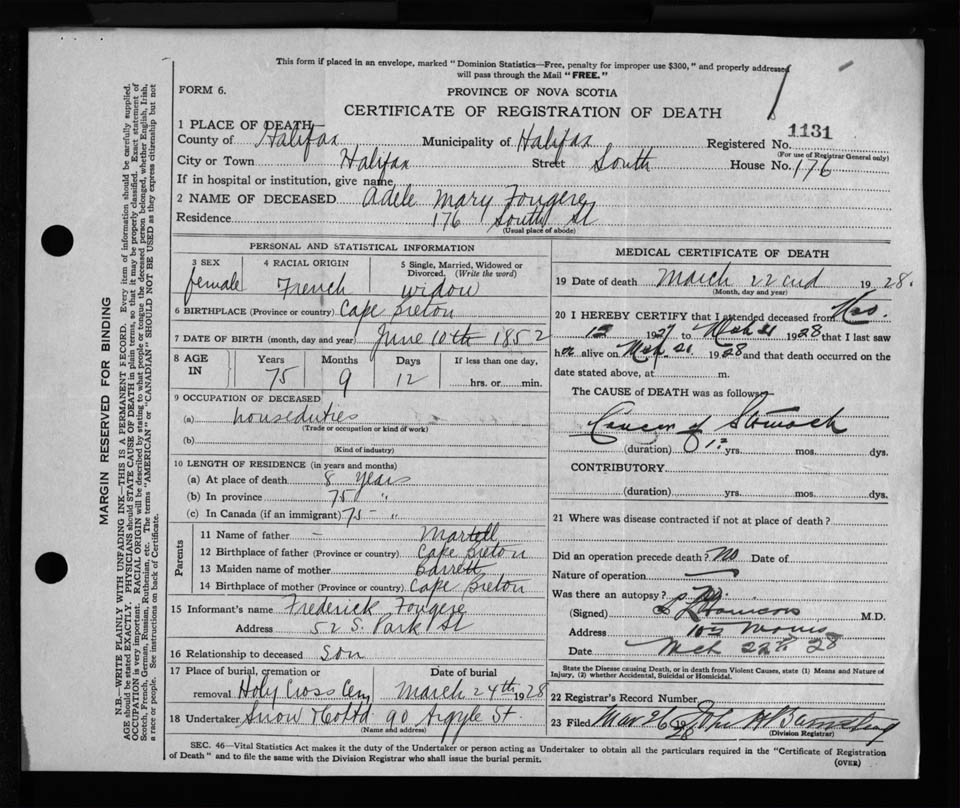 This form if placed in an envelope, marked "Dominion Statistics—Free, penalty for improper use $300," and properly addressed
will pass through the Mail "FREE."
FORM 6.
PROVINCE OF NOVA SCOTIA
CERTIFICATE OF REGISTRATION OF DEATH
1 PLACE OF DEATH
1131
County of Halifax Municipality of Halifax Registered No.
(For use of Registrar General only)
City or Town Halifax Street South House No. 176
If in hospital or institution, give name
2 NAME OF DECEASED Adele Mary Fougere
Residence 176 South St
(Usual place of abode)
PERSONAL AND STATISTICAL INFORMATION
3 SEX 4 RACIAL ORIGIN 5 Single, Married, Widowed or
Divorced. (Write the word)
female French widow
6 BIRTHPLACE (Province or country) Cape Breton
7 DATE OF BIRTH (month, day and year) June 10th 1852
8 AGE IN Years Months Days If less than one day,
75 9 12 hrs. or min.
9 OCCUPATION OF DECEASED
(a) houseduties
(Trade or occupation or kind of work)
(b)
(Kind of industry)
10 LENGTH OF RESIDENCE (in years and months)
(a) At place of death 8 years
(b) In province 75 "
(c) In Canada (if an immigrant) 75 - "
Parents
11 Name of father - Martell
12 Birthplace of father (Province or country) Cape Breton
13 Maiden name of mother Barrett
14 Birthplace of mother (Province or country) Cape Breton
15 Informant's name Frederick Fougere
Address 52 S. Park St
16 Relationship to deceased son
17 Place of burial, cremation or Date of burial
removal Holy Cross Cem March 24th 1928
18 Undertaker Snow & Co Ltd 90 Argyle St.
(Name and address)
MEDICAL CERTIFICATE OF DEATH
19 Date of death March 22nd 1928.
(Month, day and year)
20 I HEREBY CERTIFY that I attended deceased from
12 1927 to Mch 21 1928 that I last saw
her alive on Mch 21 1928 and that death occurred on
date stated above, at m.
The CAUSE OF DEATH was as follows:
Cancer of Stomach
(duration) 1? yrs. mos. dys.
CONTRIBUTORY
(duration) yrs. mos. dys.
21 Where was disease contracted if not at place of death?
Did an operation precede death? No Date of
Nature of operation
Was there an autopsy? No.
(Signed) M.D.
Address
Date Mch 22nd 28
State the Disease causing Death, or in death from Violent Causes, state (1) Means and Nature of
Injury, (2) whether Accidental, Suicidal or Homicidal.
22 Registrar's Record Number
23 Filed Mar 26 1928 John
(Division Registrar)
SEC. 46—Vital Statistics Act makes it the duty of the Undertaker or person acting as Undertaker to obtain all the particulars required in the "Certificate of Registration
of Death" and to file the same with the Division Registrar who shall issue the burial permit.
(OVER)
MARGIN RESERVED FOR BINDING
N.B.—WRITE PLAINLY WITH UNFADING INK—THIS IS A PERMANENT RECORD. Every item of information should be carefully supplied.
AGE should be stated EXACTLY. PHYSICIANS should STATE CAUSE OF DEATH in plain terms, so that it may be properly classified. Exact statement of
OCCUPATION is very important. RACIAL ORIGIN will be described by stating to what people or tongue the deceased person belonged, whether English, Irish,
Scotch, French, German, Russian, Ruthenian, etc. The terms "AMERICAN" or "CANADIAN" SHOULD NOT BE USED as they express citizenship but not
a race or people. See instructions on back of Certificate.